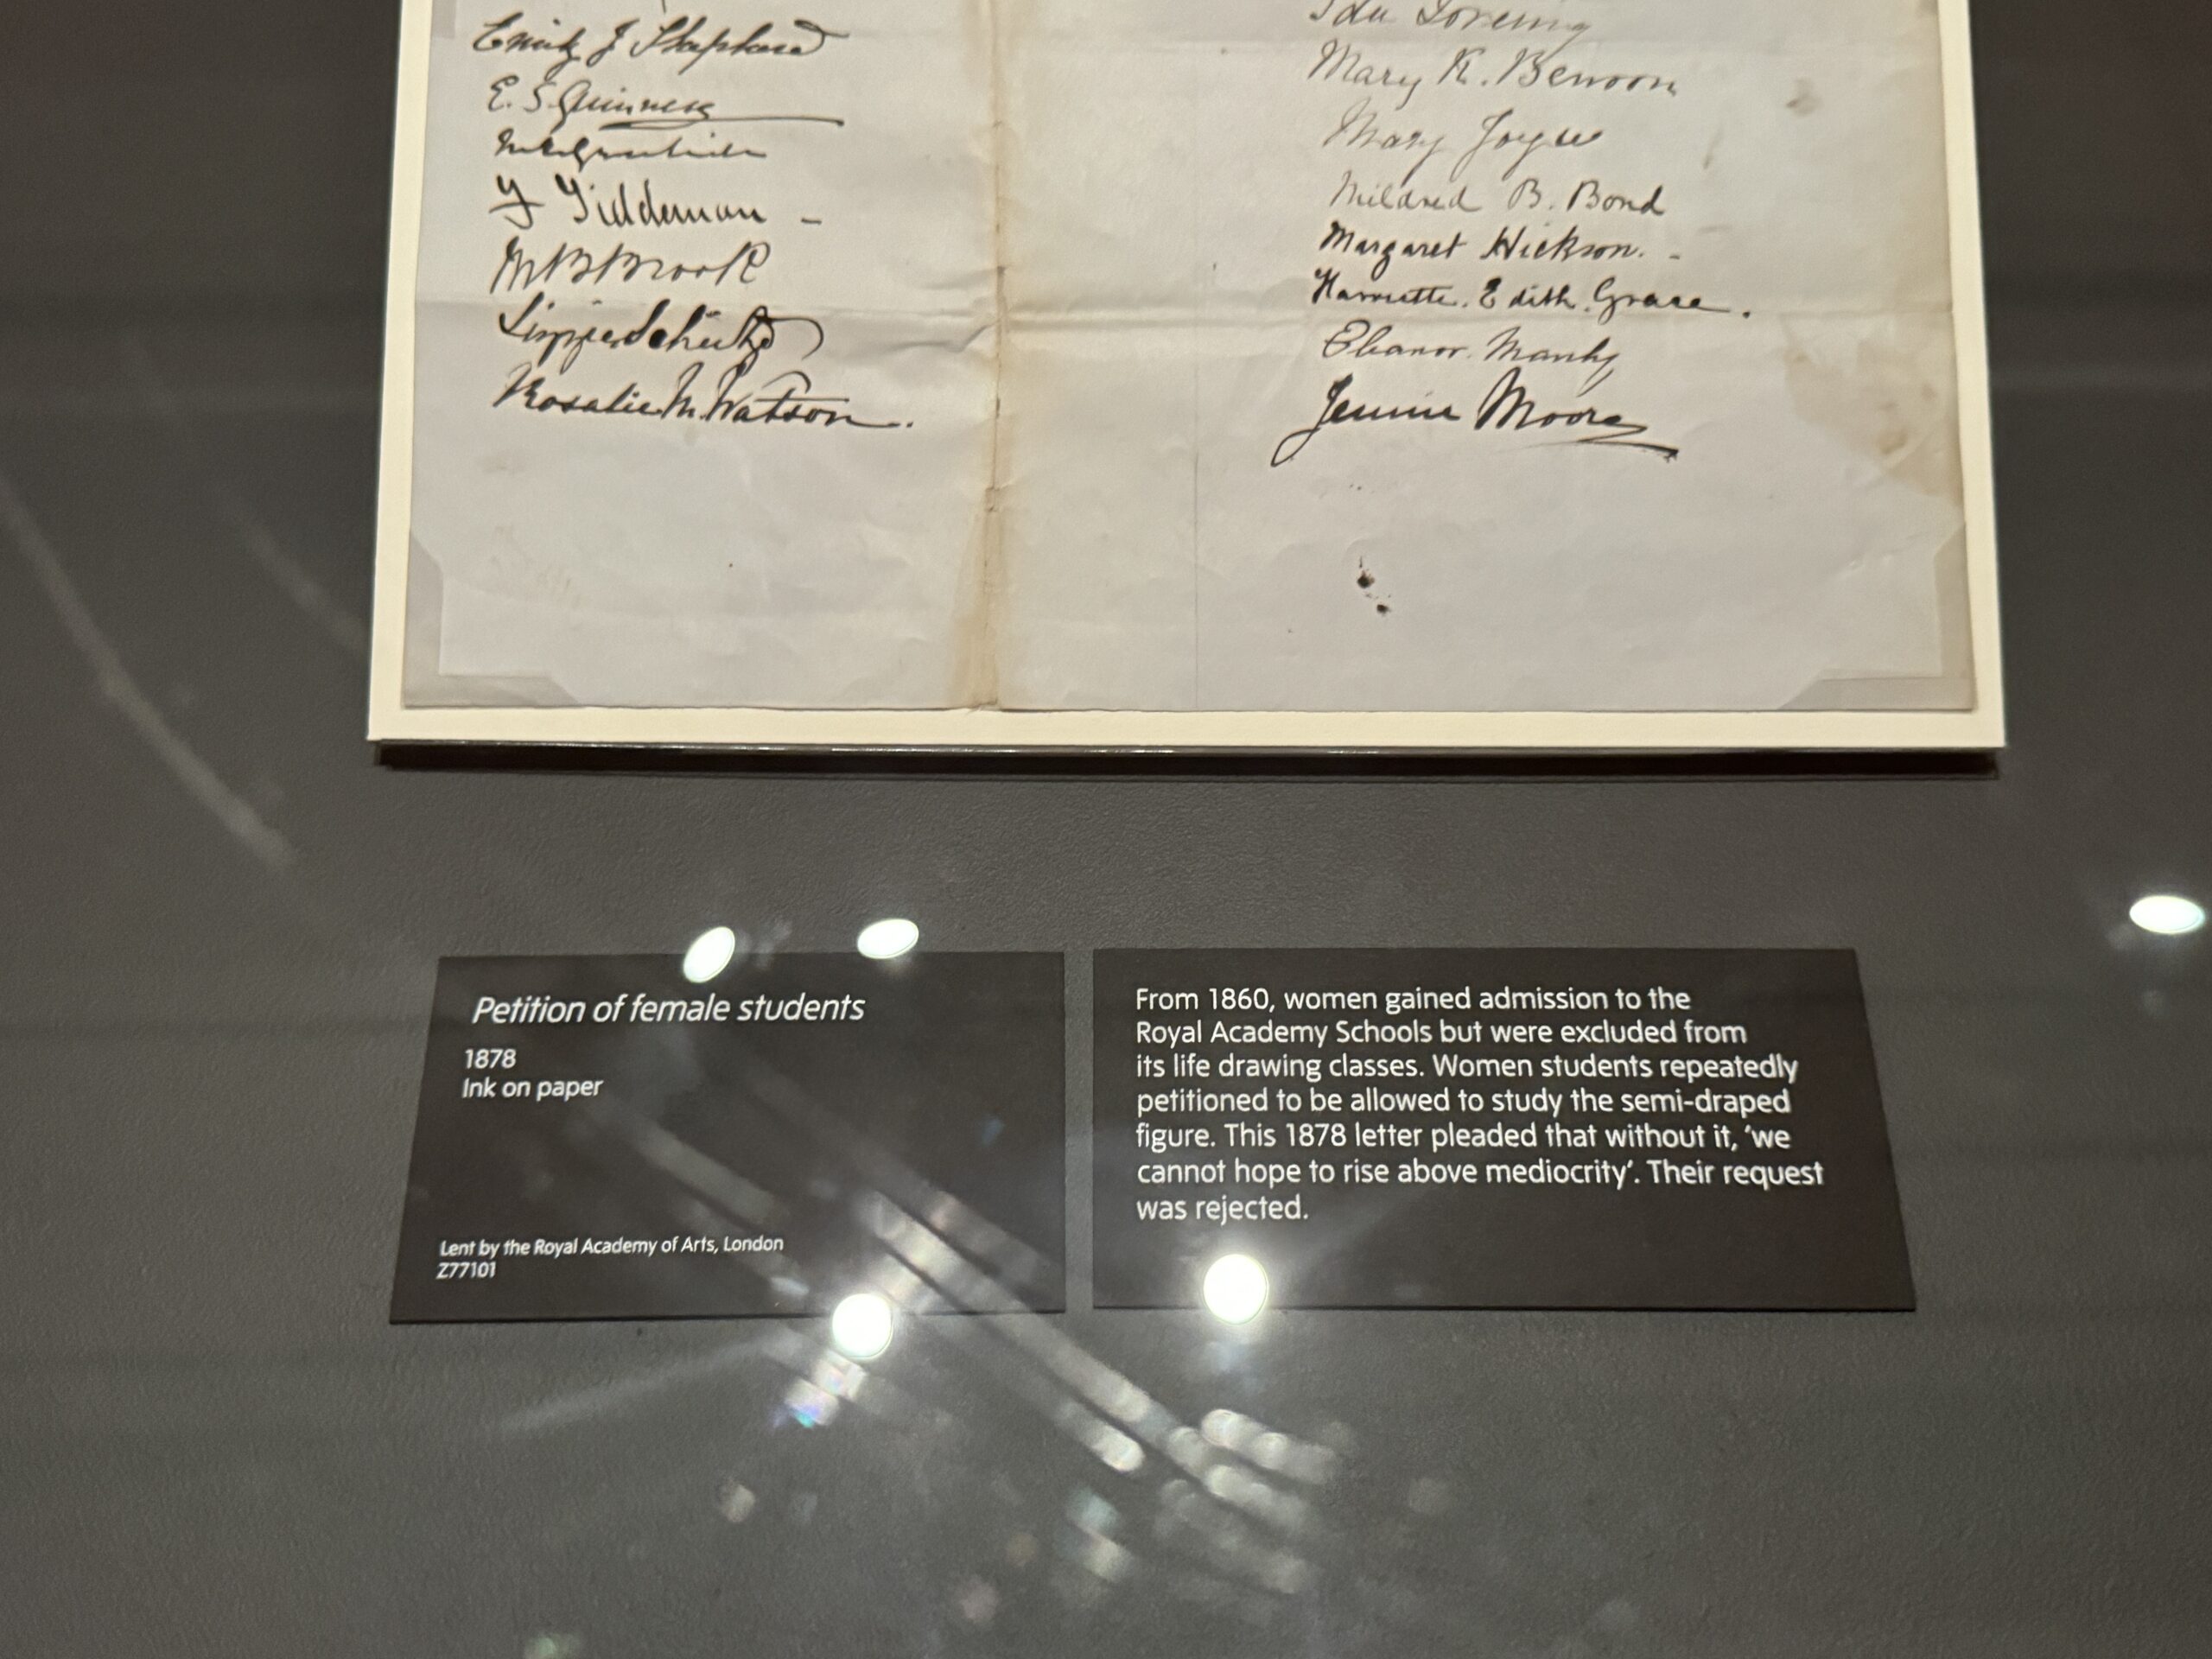 Emily J Shepherd
E. S. Guinness
Y Tiddeman -
M B Brook
Rosalie M. Watson.
Ida
Mary K. Benson
Mary Joyce
Mildred B. Bond
Margaret Hickson. -
Harriette. Edith. Grace.
Eleanor. Manly
Jennie Moore
Petition of female students
1878
Ink on paper
Lent by the Royal Academy of Arts, London
Z77101
From 1860, women gained admission to the
Royal Academy Schools but were excluded from
its life drawing classes. Women students repeatedly
petitioned to be allowed to study the semi-draped
figure. This 1878 letter pleaded that without it, ‘we
cannot hope to rise above mediocrity’. Their request
was rejected.